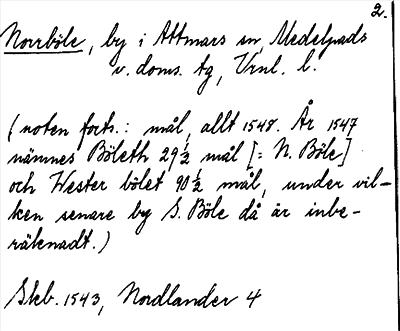 2.
Norrböle, by i Attmars sn, Medelpads
v. doms. tg, Vrnl. l.
(noten forts.: mål, allt 1548. År 1547
nämnes Böleth 29½ mål [= N. Böle]
och Wester bölet 90½ mål, under vil-
ken senare by S. Böle då är inbe-
räknadt.)
Skb. 1543, Nordlander 4